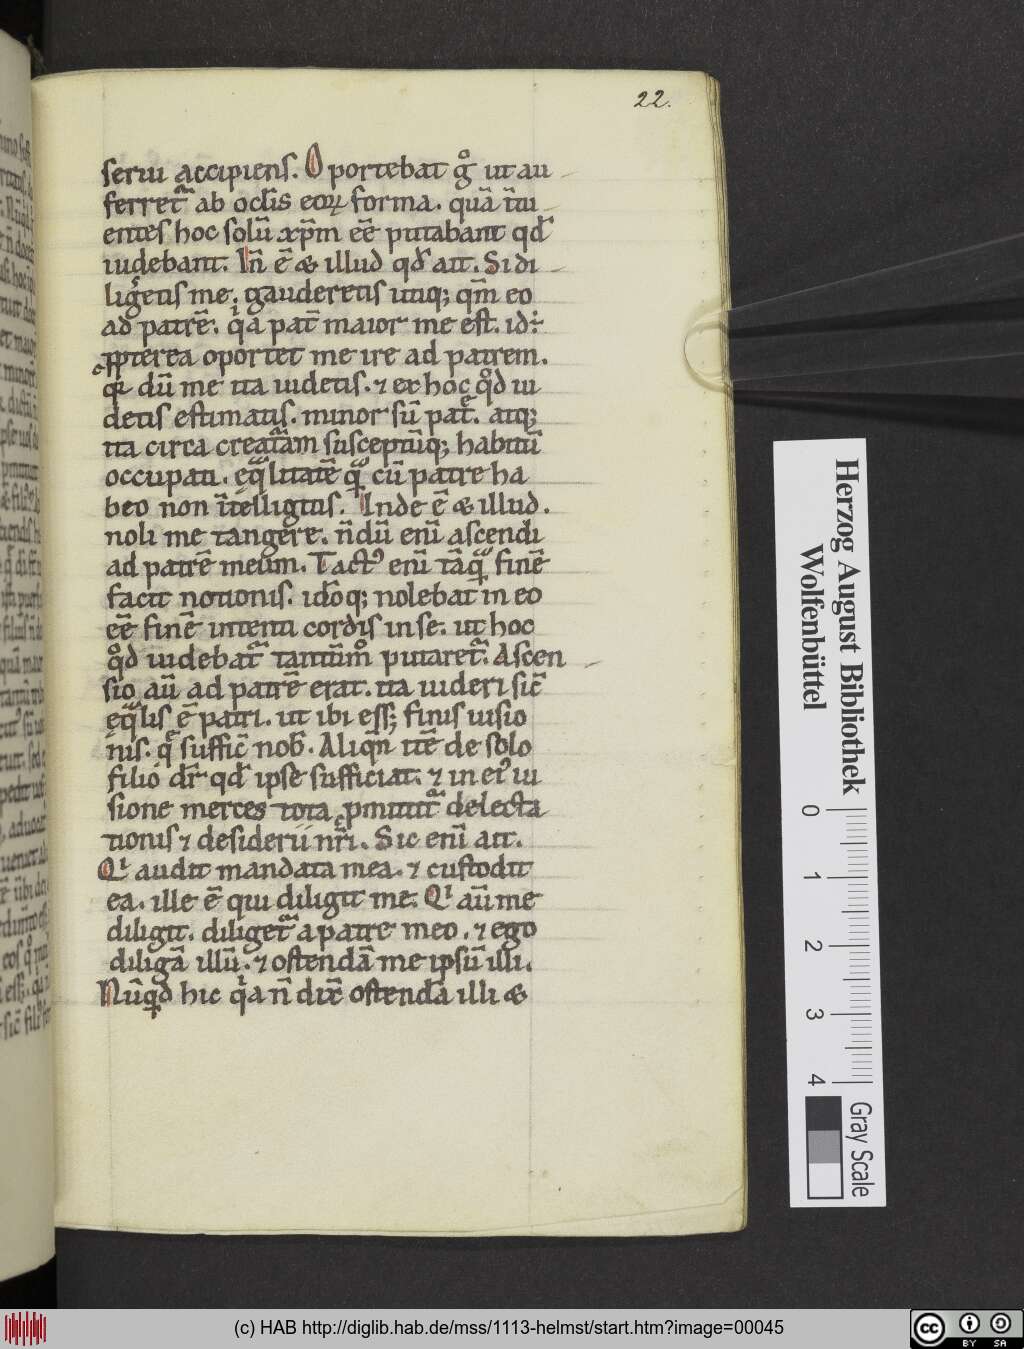 22.
serui accipiens. Oportebat gͦ ut au
ferret᷑ ab oclis̄ eoꝝ forma. quā ītu
entes hoc solū xp̄m eē putabant qd̄
uidebant. Iñ ē & illud qd̄ ait. Si di
ligͤetis me. gauderetis utiq; qm̄ eo
ad patrē. qͥa pat̄ maior me est. id÷
ꝓpterea oportet me ire ad patrem.
qꝛ dū me ita uidetis. ⁊ ex hoc qͦd ui
detis estimatis. minor sū pat̄. atq;
ita circa creatᷓam susceptūq; habitū
occupati. ęqͣlitatē qͣ cū patre ha
beo non ītelligitis. Inde ē & illud.
noli me tangere. n̄dū enī ascendi
ad patrē meum. Tactꝰ enī tāqͣ finē
facit notionis. idōq; nolebat in eo
eē finē intenti cordis in se. ut hoc
qͦd uidebat᷑ tantūmͦ putaret᷑. Ascen
sio aū ad patrē erat. ita uideri sic̄
eqͣlis ē patri. ut ibi ess; finis uisio
nis. q̄ suffic̄ nob̄. Aliqn̄ itē de solo
filio dr̄ qd̄ ipse sufficiat. ⁊ in eiꝰ ui
sione merces tota ꝓmittit᷑ delecta
tionis ⁊ desiderii nr̄i. Sic enī ait.
Qͥ audit mandata mea. ⁊ custodit
ea. ille ē qui diligit me. Qͥ aū me
diligit. diliget᷑ a patre meo. ⁊ ego
diligā illū. ⁊ ostendā me ipsū illi.
Nūqͥd hic qͥa n̄ dix̄ ostendā illi &
Herzog August Bibliothek
Wolfenbüttel
0 1 2 3 4
Gray Scale
(c) HAB http://diglib.hab.de/mss/1113-helmst/start.htm?image=00045
cc BY SA